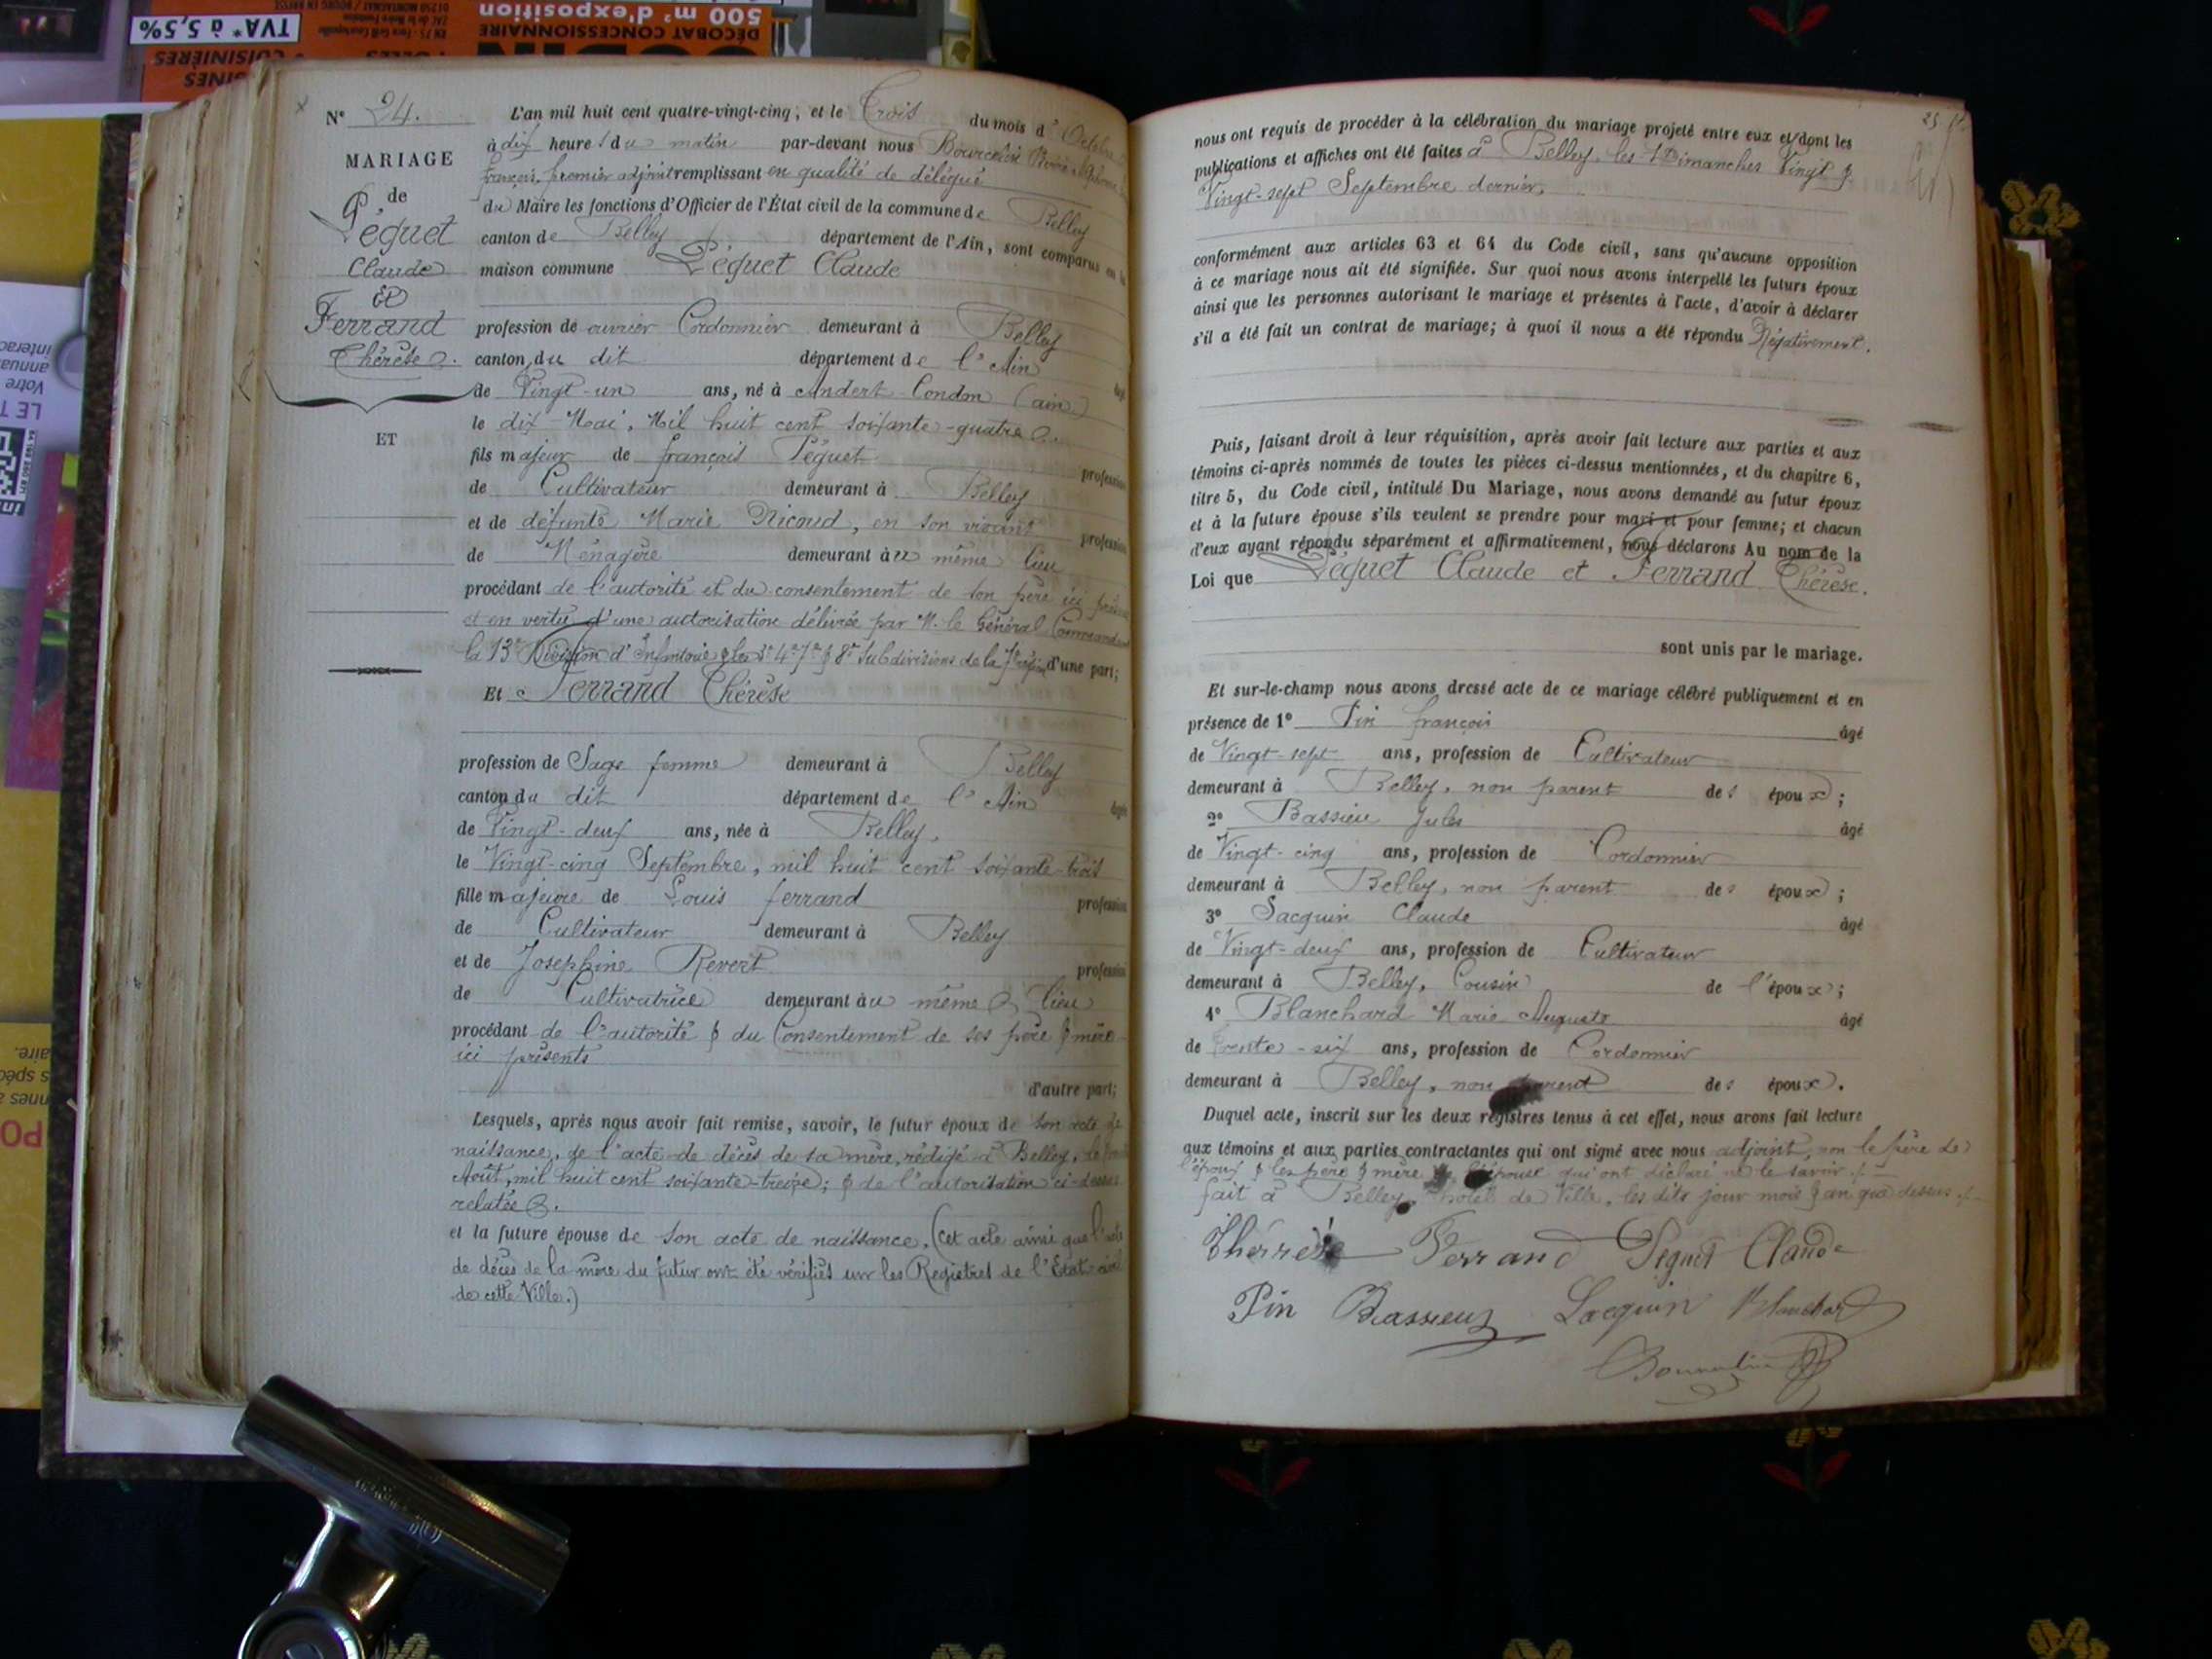 TVA* à 5,5%
CUISINIÈRES
DÉCOBAT CONCESSIONNAIRE
500 m² d'exposition
N° 24.
MARIAGE
de
Péguet
Claude
et
Ferrand
Thérèse.
ET
L'an mil huit cent quatre-vingt-cinq, et le Trois du mois d'Octobre
à dix heures du matin par-devant nous
François, premier adjoint remplissant en qualité de délégué
du Maire les fonctions d'Officier de l'État civil de la commune de Belley
canton de Belley département de l'Ain, sont comparus en la
maison commune Péguet Claude
profession de ouvrier Cordonnier demeurant à Belley
canton du dit département de l'Ain âgé
de Vingt-un ans, né à Andert-Condon (ain)
le dix Mai, Mil huit cent soixante-quatre.
fils majeur de françois Péguet profession
de Cultivateur demeurant à Belley
et de défunte Marie Nicoud, en son vivant profession
de Ménagère demeurant au même lieu
procédant de l'autorité et du consentement de son père ici présent
et en vertu d'une autorisation délivrée par M. le Général Commandant
la 13e Division d'Infanterie & les 3e 4e 7e & 8e Subdivisions de la 7e région d'une part;
Et Ferrand Thérèse
profession de Sage femme demeurant à Belley
canton du dit département de l'Ain âgée
de Vingt-deux ans, née à Belley,
le Vingt-cinq Septembre, mil huit cent soixante-trois
fille majeure de Louis ferrand profession
de Cultivateur demeurant à Belley
et de Josephine Revert profession
de Cultivatrice demeurant au même lieu
procédant de l'autorité & du Consentement de ses père & mère
ici présents
d'autre part;
Lesquels, après nous avoir fait remise, savoir, le futur époux de son acte de
naissance, de l'acte de décès de sa mère, rédigé à Belley, le
Août, mil huit cent soixante-treize; & de l'autorisation ci-dessus
relatée.
et la future épouse de son acte de naissance, (cet acte ainsi que l'acte
de décès de la mère du futur ont été vérifiés sur les Registres de l'Etat-civil
de cette Ville.)
nous ont requis de procéder à la célébration du mariage projeté entre eux et dont les
publications et affiches ont été faites à Belley, les Dimanches Vingt &
Vingt-sept Septembre dernier,
conformément aux articles 63 et 64 du Code civil, sans qu'aucune opposition
à ce mariage nous ait été signifiée. Sur quoi nous avons interpellé les futurs époux
ainsi que les personnes autorisant le mariage et présentes à l'acte, d'avoir à déclarer
s'il a été fait un contrat de mariage; à quoi il nous a été répondu Négativement.
Puis, faisant droit à leur réquisition, après avoir fait lecture aux parties et aux
témoins ci-après nommés de toutes les pièces ci-dessus mentionnées, et du chapitre 6,
titre 5, du Code civil, intitulé Du Mariage, nous avons demandé au futur époux
et à la future épouse s'ils veulent se prendre pour mari et pour femme; et chacun
d'eux ayant répondu séparément et affirmativement, nous déclarons Au nom de la
Loi que Péguet Claude et Ferrand Thérèse.
sont unis par le mariage.
Et sur-le-champ nous avons dressé acte de ce mariage célébré publiquement et en
présence de 1° Pin françois âgé
de Vingt-sept ans, profession de Cultivateur
demeurant à Belley, non parent des époux;
2° Bassieu Jules âgé
de Vingt-cinq ans, profession de Cordonnier
demeurant à Belley, non parent des époux;
3° Sacquin Claude âgé
de Vingt-deux ans, profession de Cultivateur
demeurant à Belley, Cousin de l'époux;
4° Blanchard Marie Auguste âgé
de trente-six ans, profession de Cordonnier
demeurant à Belley, non parent des époux.
Duquel acte, inscrit sur les deux registres tenus à cet effet, nous avons fait lecture
aux témoins et aux parties contractantes qui ont signé avec nous adjoint, non le père de
l'époux & les père & mère de l'épouse qui ont déclaré ne le savoir
fait à Belley, hotel de Ville, les dits jour mois & an que dessus
Thérrése Ferrand Péguet Claude
Pin Bassieu Sacquin Blanchard